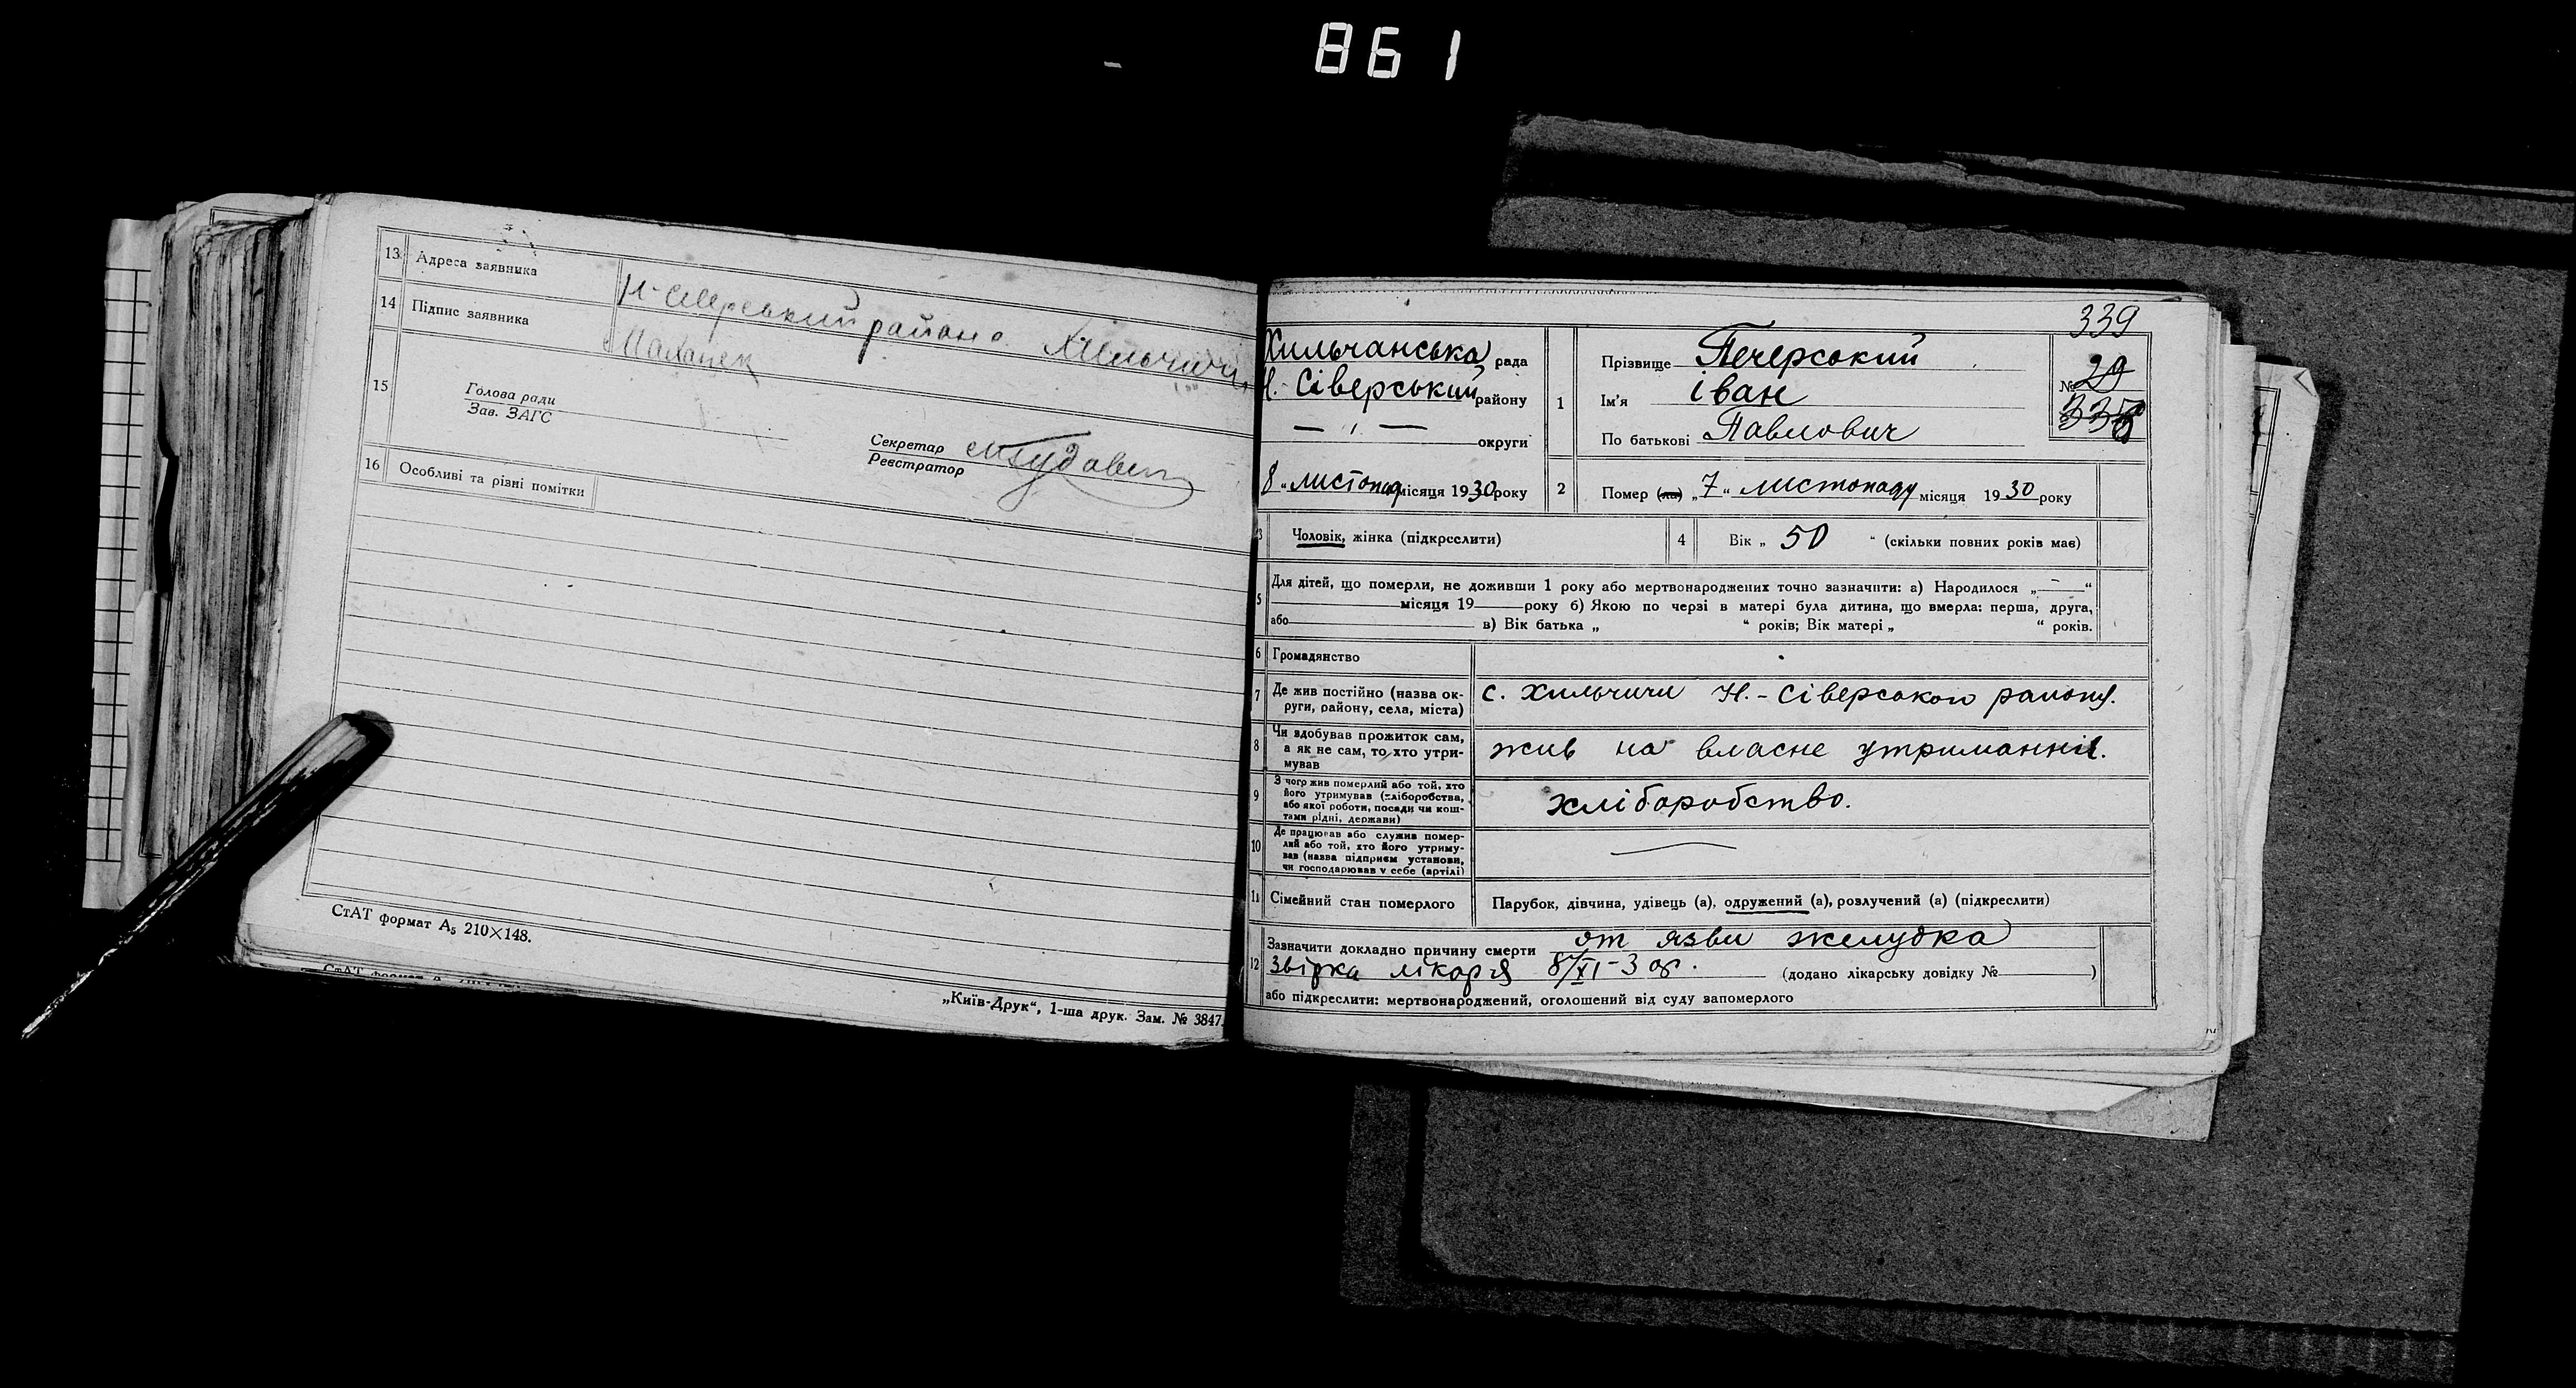 861
13 Адреса заявника Н-Сіверський район с. Хильчичі
14 Підпис заявника
15
Голова ради
Зав. ЗАГС
Секретар
Реєстратор
16 Особливі та різні помітки
СтАТ формат А₅ 210×148.
„Київ-Друк“, 1-ша друк. Зам. № 3847.
339
Хильчанська рада
Н.-Сіверський району
— " — округи
8 „ листопад місяця 1930 року
1 Прізвище Печерський
Ім’я іван
По батькові Павлович
№ 29
338
2 Помер (ла) „ 7 “ листопаду місяця 1930 року
3 Чоловік, жінка (підкреслити)
4 Вік „ 50 “ (скільки повних років має)
5 Для дітей, що померли, не доживши 1 року або мертвонароджених точно зазначити: а) Народилося „ — “
місяця 19 року б) Якою по черзі в матері була дитина, що вмерла: перша, друга,
або в) Вік батька „ “ років; Вік матері „ “ років.
6 Громадянство
7 Де жив постійно (назва ок-
руги, району, села, міста) с. Хильчичи Н.-Сіверського району.
8 Чи здобував прожиток сам,
а як не сам, то хто утри-
мував жив на власне утримання.
9 З чого жив померлий або той, хто
його утримував (хліборобства,
або якої роботи, посади чи кош-
тами рідні, держави) хліборобство.
10 Де працював або служив помер-
лий або той, хто його утриму-
вав (назва підприєм установи,
чи господарював у себе (артілі)
11 Сімейний стан померлого Парубок, дівчина, удівець (а), одружений (а), розлучений (а) (підкреслити)
12 Зазначити докладно причину смерти от язви желудка
Звірка лікаря 8/XI-30р. (додано лікарську довідку № )
або підкреслити: мертвонароджений, оголошений від суду запомерлого